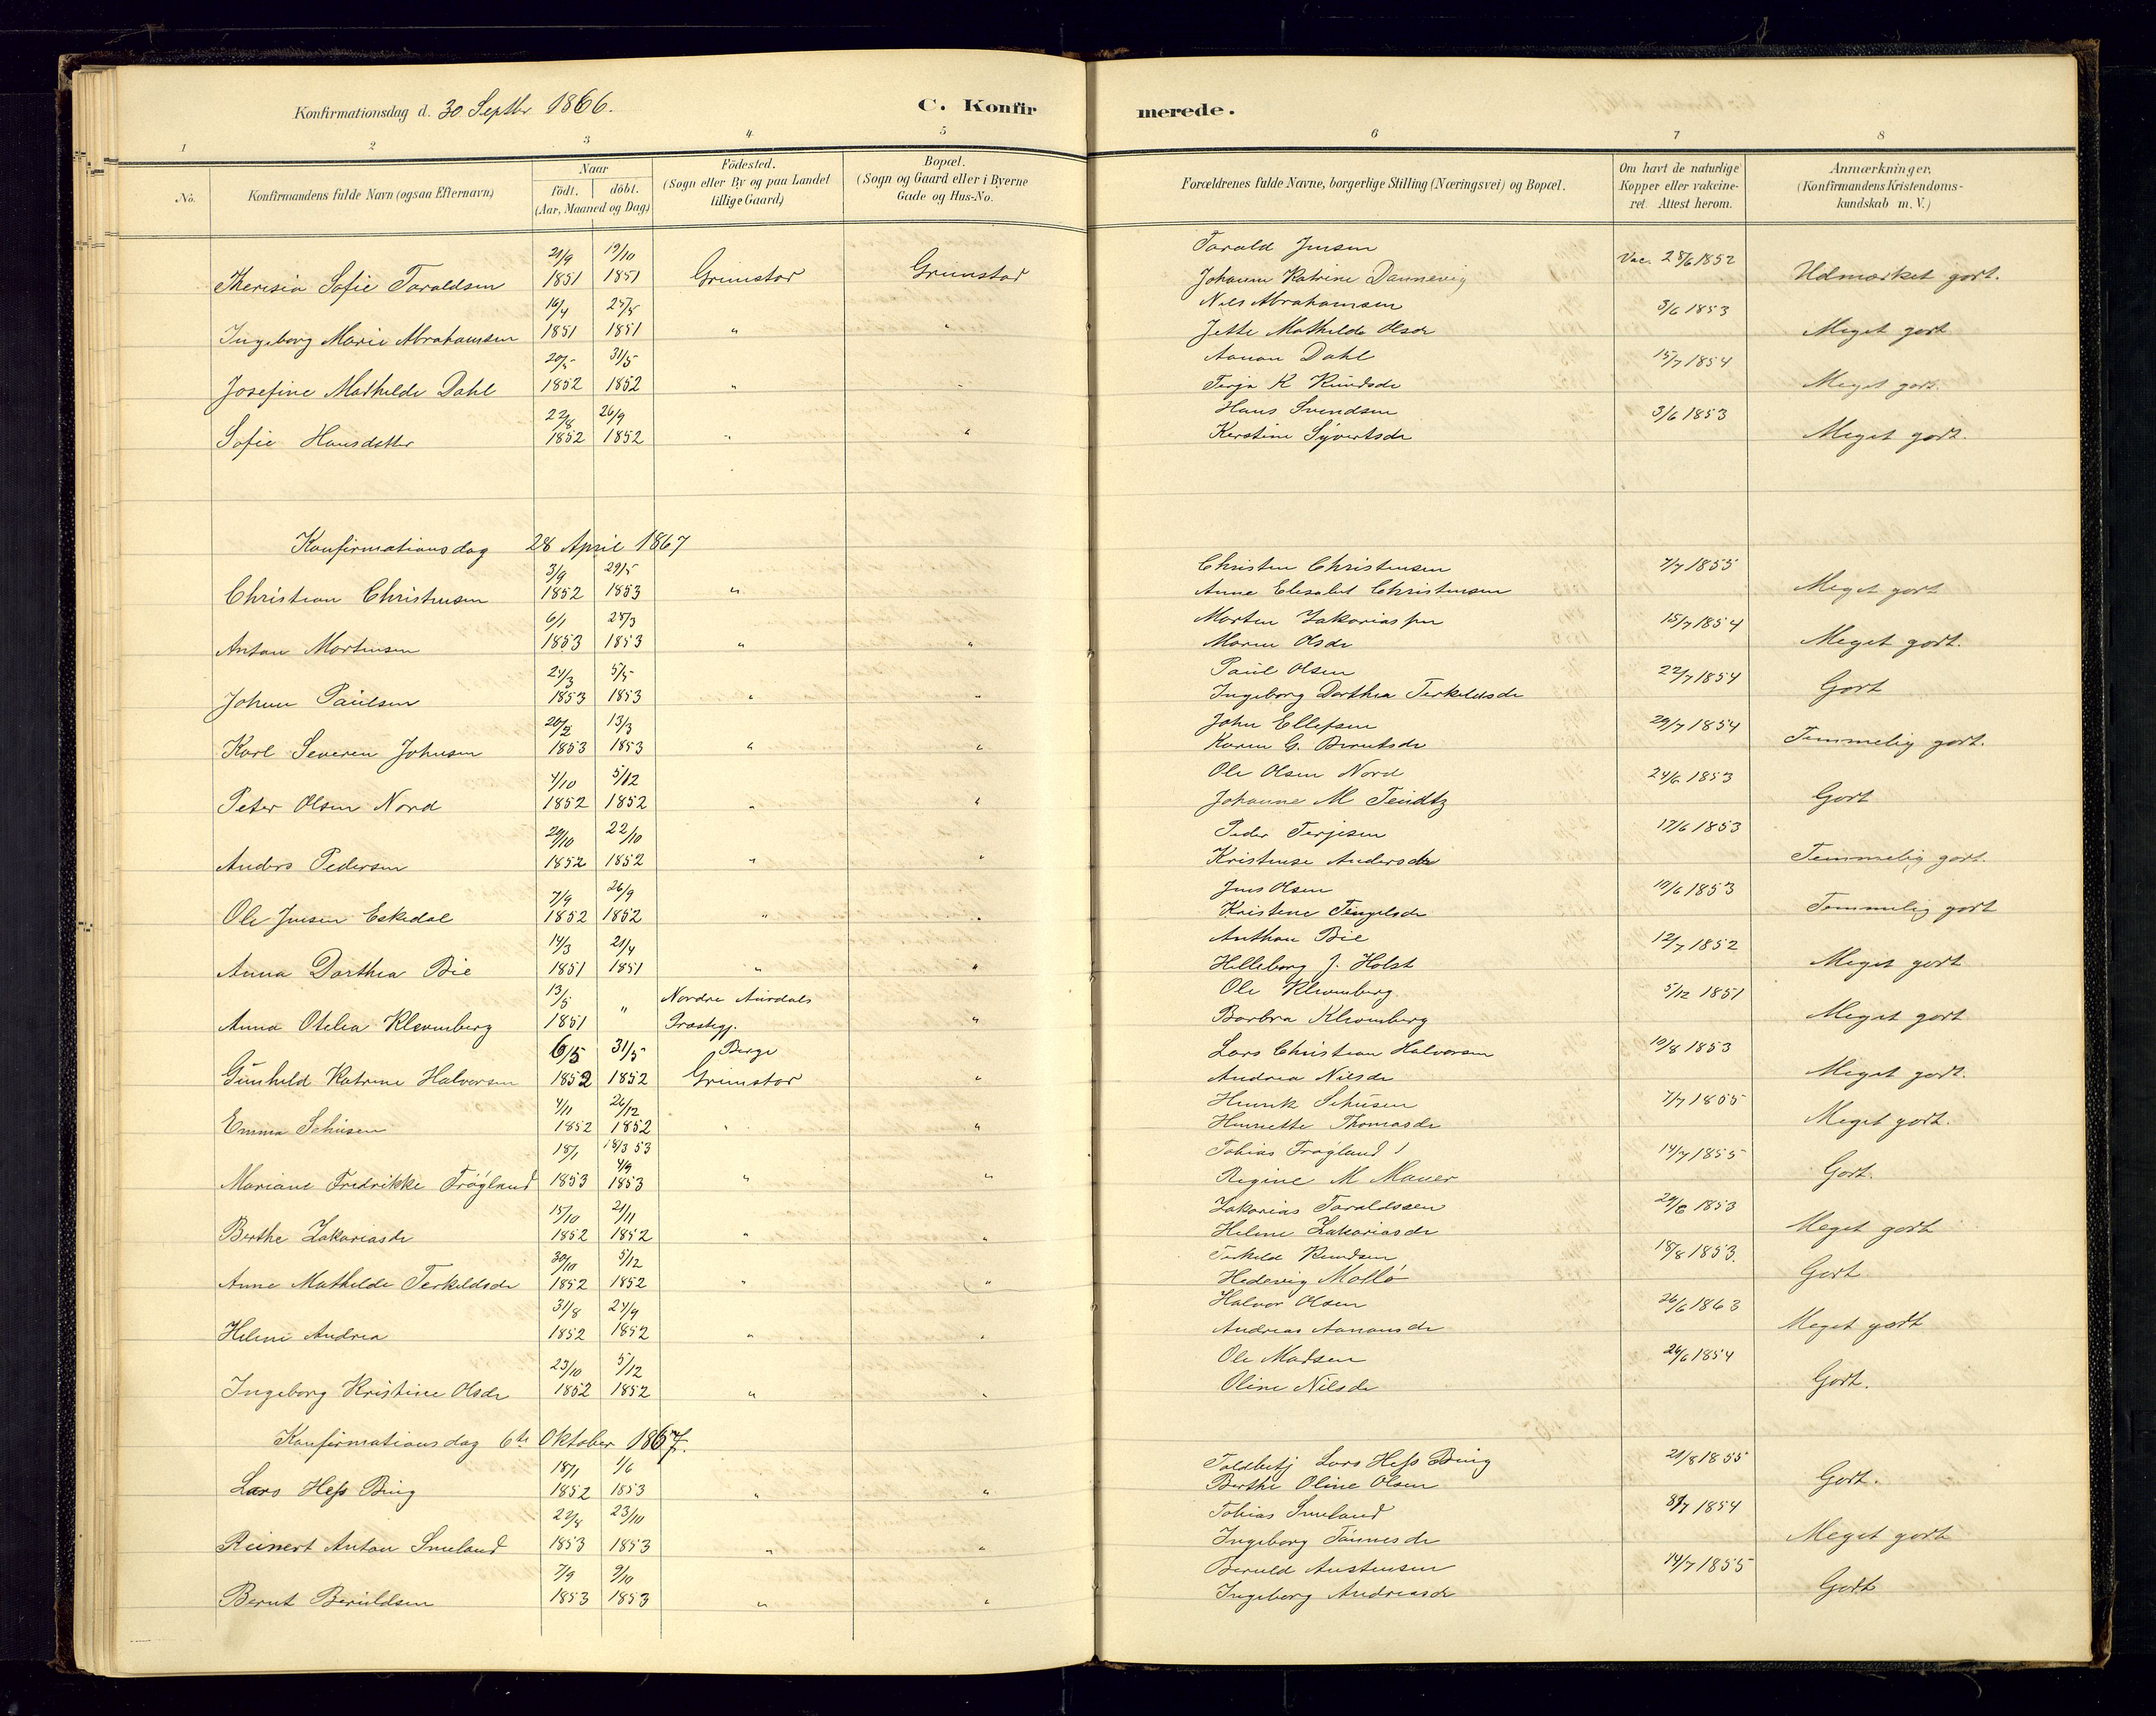 Konfirmationsdag d. 30. Septbr 1866.
C. Konfirmerede.
1 2 3 4 5 6 7 8
No.
Konfirmandens fulde Navn (ogsaa Efternavn)
Naar
födt. döbt.
(Aar, Maaned og Dag)
Födested.
(Sogn eller By og paa Landet
tillige Gaard)
Bopæl.
(Sogn og Gaard eller i Byerne
Gade og Hus-No.
Forældrenes fulde Navne, borgerlige Stilling (Næringsvei) og Bopæl.
Om havt de naturlige
Kopper eller vakcine-
ret. Attest herom.
Anmærkninger,
(Konfirmandens Kristendoms-
kundskab m. V.)
21/9 19/10 Tarald Jensen Vac. 28/6 1852
Theresia Sofie Taraldsen 1851 1851 Grimstad Grimstad Johanne Katrine Dannevig Udmærket godt.
16/4 25/5 Nils Abrahamsen 3/6 1853
Ingeborg Marie Abrahamsen 1851 1851 " " Jette Mathilde Olsdr Meget godt
20/5 31/5 Aanon Dahl 15/7 1854
Josefine Mathilde Dahl 1852 1852 " " Terja K Knudsdr Meget godt.
22/8 26/9 Hans Svendsen 3/6 1853
Sofie Hansdatter 1852 1852 " " Kerstine Syvertsdr Meget godt.
Konfirmationsdag 28 April 1867
3/9 29/5 Christen Christensen 7/7 1855
Christian Christensen 1852 1853 " Anne Elisabet Christensen Meget godt
6/1 28/3 Morten Zakariassen 15/7 1854
Anton Mortensen 1853 1853 " " Maren Olsdr Meget godt.
24/3 5/5 Paul Olsen 22/7 1854
Johan Paulsen 1853 1853 " " Ingeborg Dorthea Terkeldsdr Godt
20/2 13/3 John Ellefsen 29/7 1854
Karl Severen Johnsen 1853 1853 " " Karen G. Berntsdr Temmelig godt.
4/10 5/12 Ole Olsen Nord 24/6 1853
Peter Olsen Nord 1852 1852 " " Johanne M Teudtz Godt
20/10 22/10 Peder Terjesen 17/6 1853
Anders Pedersen 1852 1852 " " Kristense Andersdr Temmelig godt.
7/9 26/9 Jens Olsen 10/6 1853
Ole Jensen Eskedal 1852 1852 " " Kristene Tengelsdr Temmelig godt
14/3 21/4 Anthon Bie 12/7 1852
Anna Dorthea Bie 1851 1851 " " Helleborg J. Holst Meget godt
13/5 Nordre Aurdals Ole Klevmberg 5/12 1851
Anna Otelea Klevmberg 1851 " Præstegj. " Barbra Klevmberg Meget godt
6/5 31/5 Berge Lars Christian Halvorsen 10/8 1853
Gunhild Katrine Halvorsen 1852 1852 Grimstad " Andrea Nilsdr Meget godt.
4/11 26/12 Henrik Schusen 7/7 1855
Emma Schusen 1852 1852 " " Henriette Thomasdr Meget godt.
18/1 18/3 53 Tobias Frøgland 14/7 1855
4/9
Mariane Fredrikke Frøgland 1853 1853 " " Regine M Mauer Godt.
15/10 21/11 Zakarias Taraldssen 24/6 1853
Berthe Zakariasdr 1852 1852 " " Helene Zakariasdr Meget godt
30/10 5/12 Terkeld Knudsen 18/8 1853.
Anne Mathilde Terkeldsdr 1852 1852 " " Hedevig Mollø Godt
31/8 24/9 Halvor Olsen 26/6 1863
Helene Andrea 1852 1852 " " Andreas Aanonsdr Meget godt
23/10 5/12 Ole Madsen 24/6 1854
Ingeborg Kristine Olsdr 1852 1852 " " Oline Nilsdr Godt.
Konfirmationsdag 6te Oktober 1867.
18/1 1/6 Toldbetj Lars Hess Bing 21/8 1855
Lars Hess Bing 1852 1853 " " Berthe Oline Olsen Godt.
22/8 23/10 Tobias Smeland 1854
Reinert Anton Smeland 1853 1853 " " Ingeborg Tønnesdr Meget godt
7/9 9/10 Beruld Austensen 14/7 1855
Bernt Beruldsen 1853 1853 " " Ingeborg Andreasdr Godt